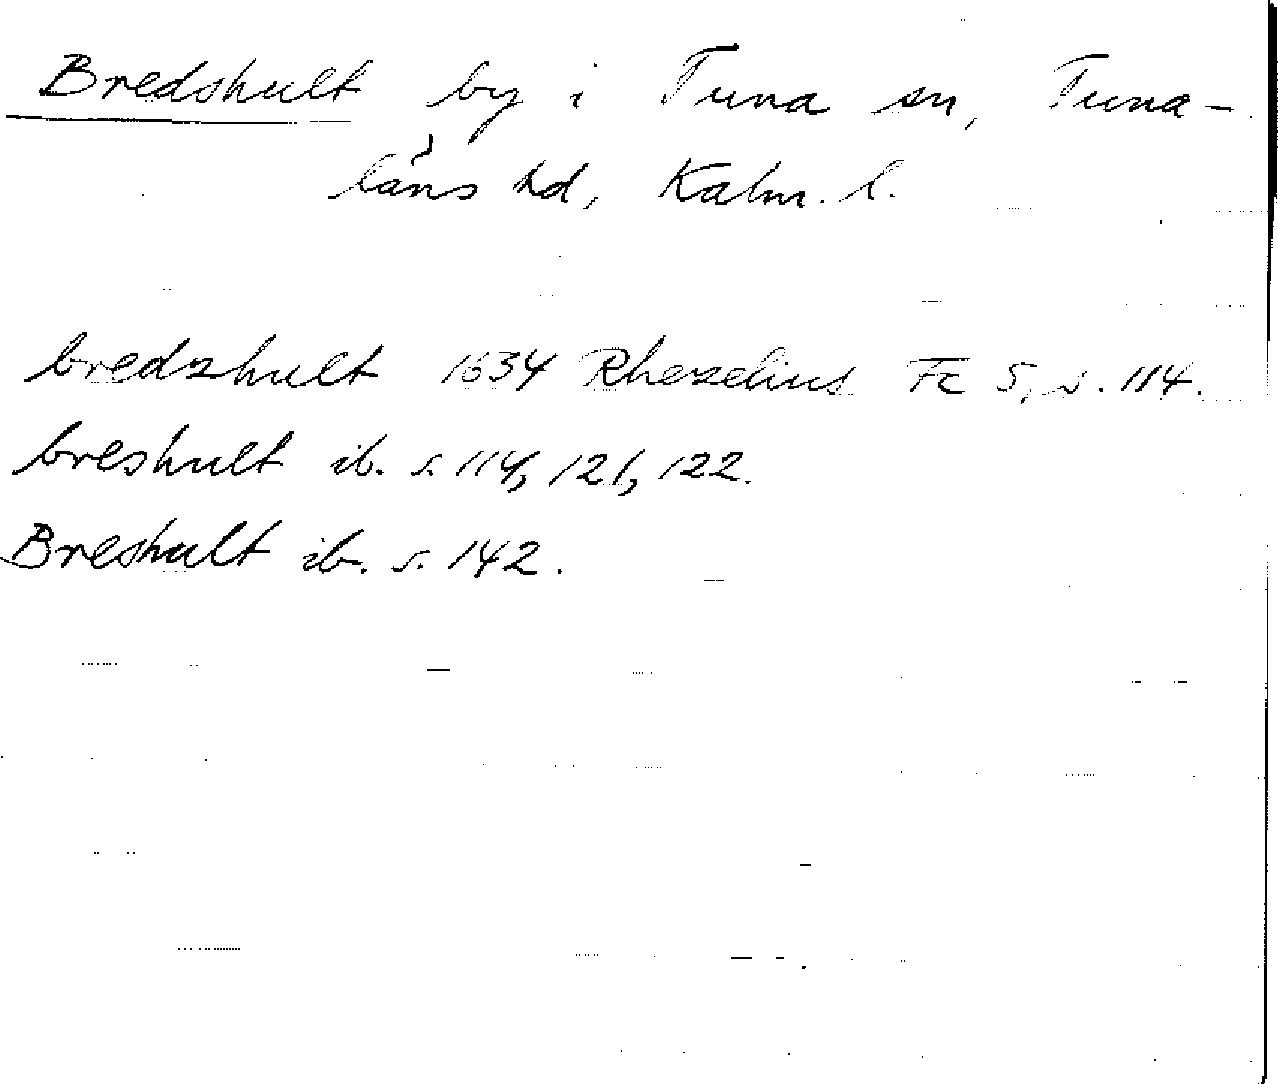 Bredshult by i Tuna sn, Tuna-
läns hd, Kalm. l.
bredzhult 1634 Rhezelius Fc 5, s. 114.
breshult ib. s. 114, 121, 122.
Breshult ib. s. 142.